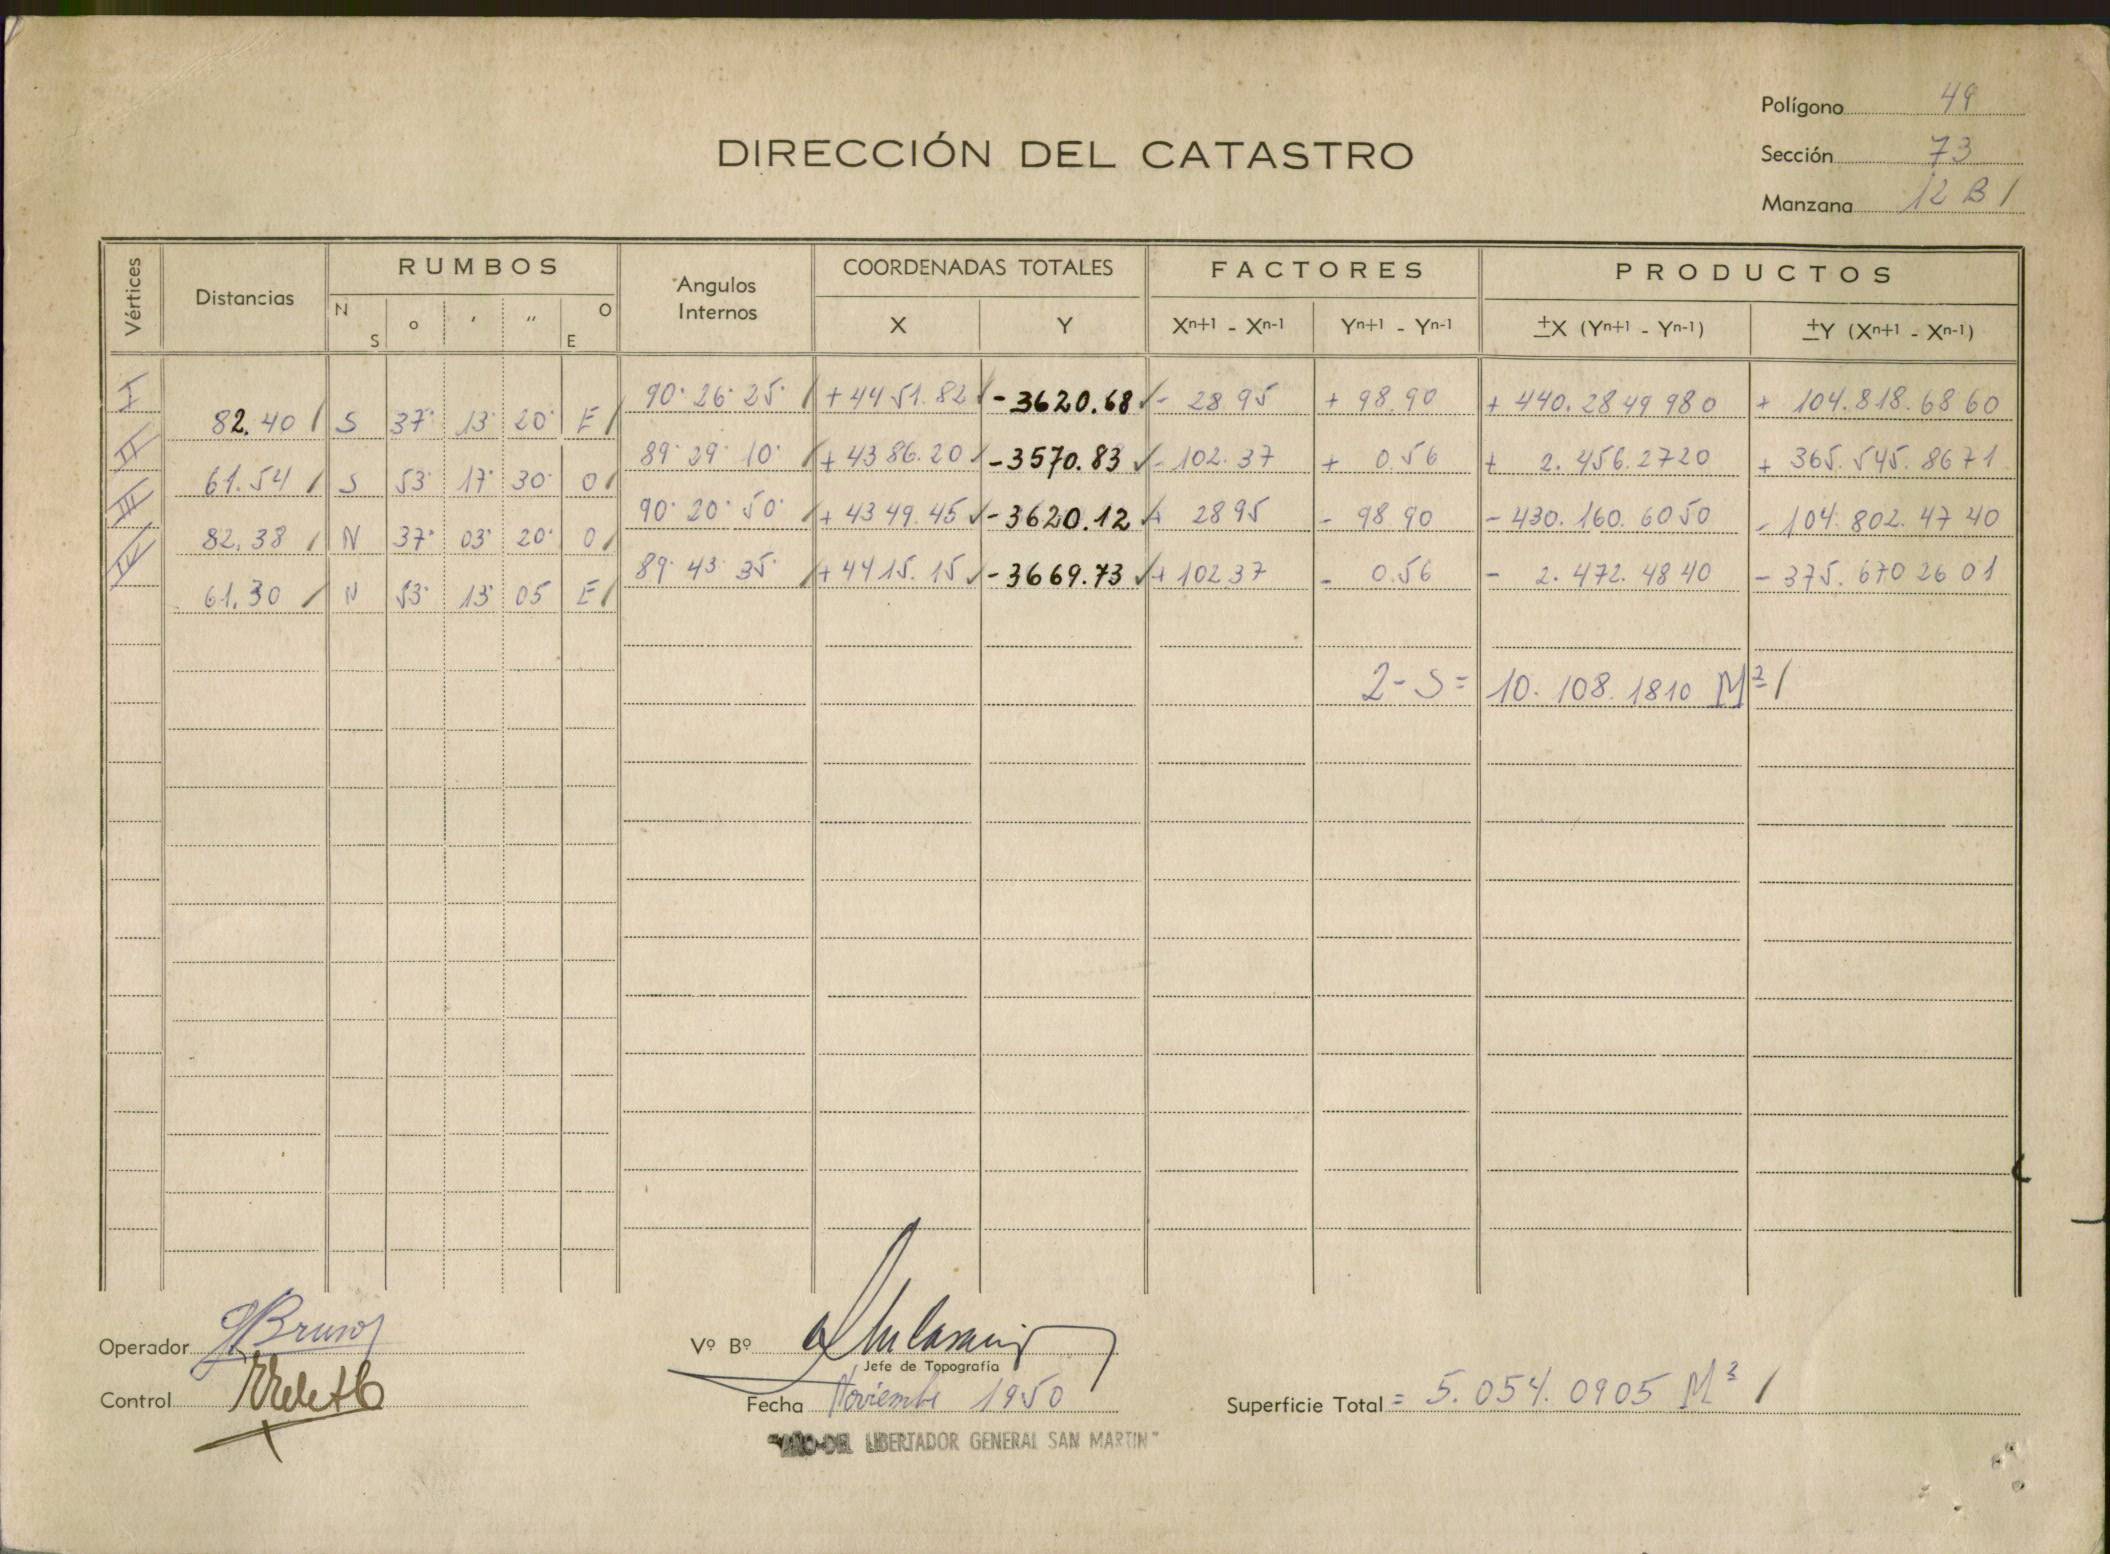 Polígono 49
DIRECCIÓN DEL CATASTRO
Sección 73
Manzana 12 B /
Vértices Distancias RUMBOS Angulos Internos COORDENADAS TOTALES FACTORES PRODUCTOS
N S o ' " O E X Y Xn+1 - Xn-1 Yn+1 - Yn-1 ±X (Yn+1 - Yn-1) ±Y (Xn+1 - Xn-1)
I 90° 26' 25" / + 4451.82 / - 3620.68 / - 28.95 + 98.90 + 440.284 9980 + 104.818.6860
82.40 / S 37° 13' 20" E /
II 89° 29' 10" / + 4386.20 / - 3570.83 / - 102.37 + 0.56 + 2.456.2720 + 365.545.8671
61.54 / S 53° 17' 30" O /
III 90° 20' 50" / + 4349.45 / - 3620.12 / + 28 95 - 98 90 - 430.160.6050 - 104.802.4740
82.38 / N 37° 03' 20" O /
IV 89° 43' 35" / + 4415.15 / - 3669.73 / + 102 37 - 0.56 - 2.472.4840 - 375.670 2601
61.30 / N 53° 13' 05 E /
2-S = 10.108.1810 M² /
Operador Bruno
Vº Bº
Jefe de Topografía
Control
Fecha Noviembre 1950
Superficie Total = 5.054.0905 M² /
"AÑO DEL LIBERTADOR GENERAL SAN MARTIN"